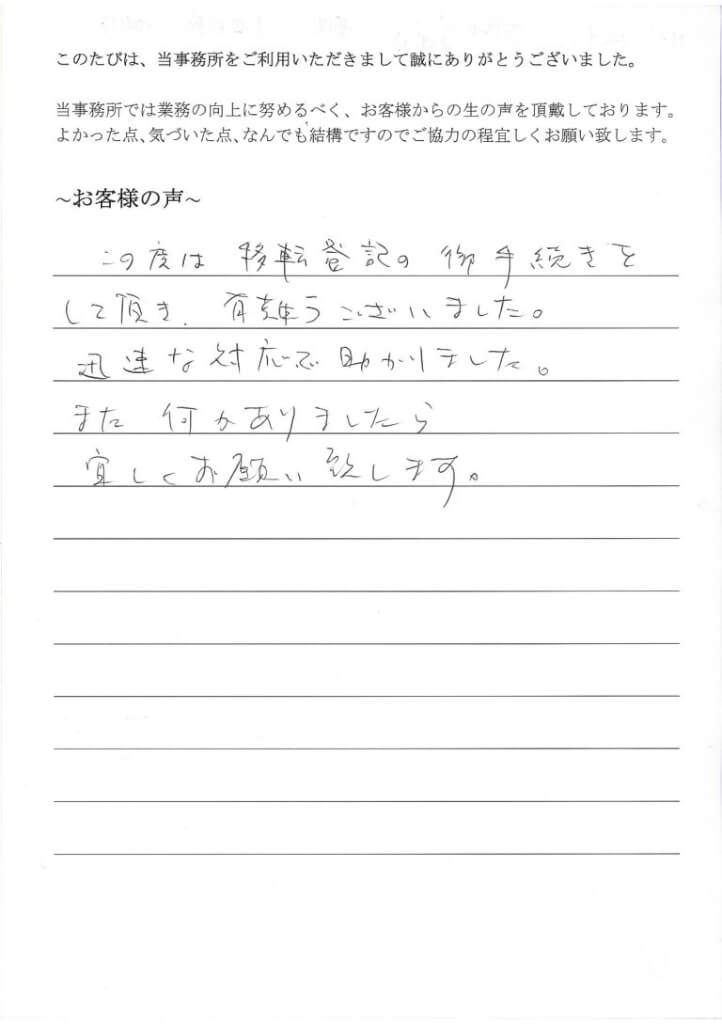 このたびは、当事務所をご利用いただきまして誠にありがとうございました。
当事務所では業務の向上に努めるべく、お客様からの生の声を頂戴しております。
よかった点、気づいた点、なんでも結構ですのでご協力の程宜しくお願い致します。
~お客様の声~
この度は 移転登記の 御手続きを
して頂き、有難うございました。
迅速な対応で助かりました。
また 何かありましたら
宜しくお願い致します。